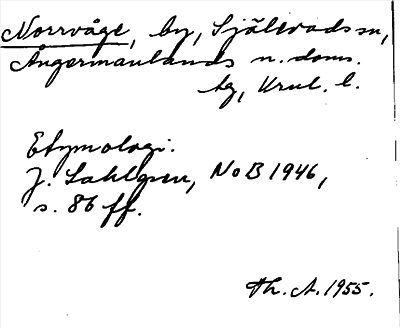 Norrvåge, by, Själevads sn,
Ångermanlands n. doms.
tg, Vrnl. l.
Etymologi.
J. Sahlgren, NoB 1946,
s. 86 ff.
Th. A. 1955.